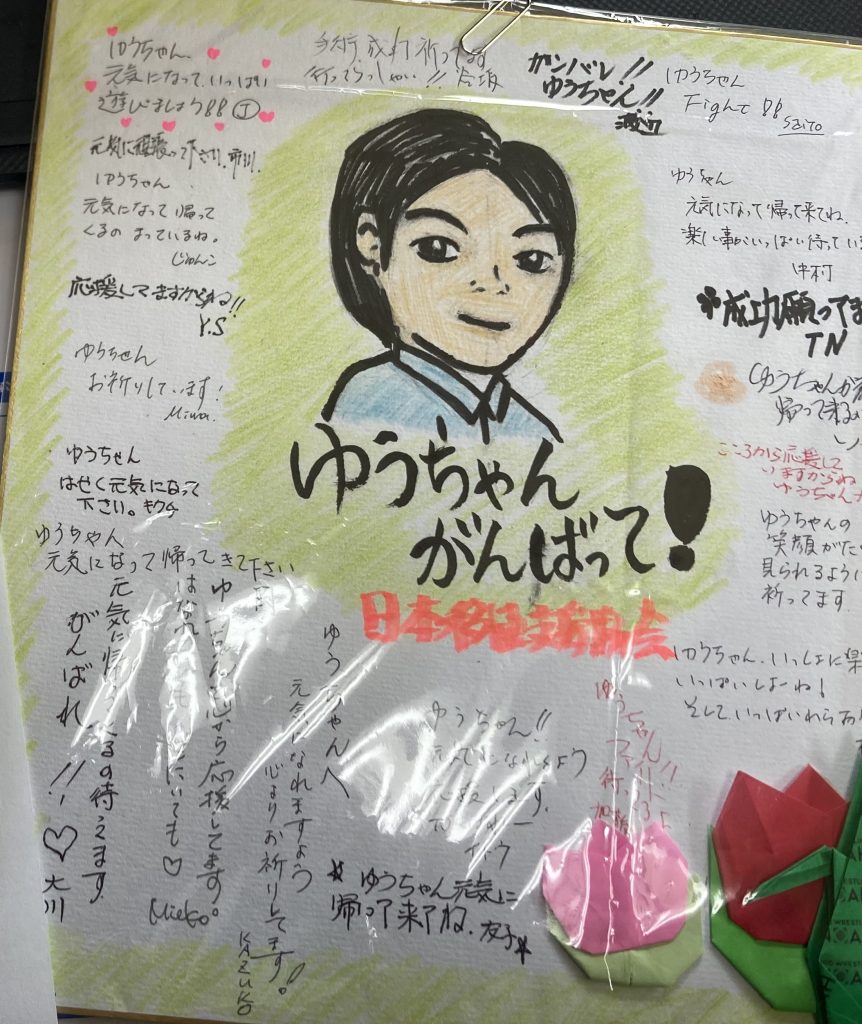 ゆうちゃん
元気になって、いっぱい
遊びましょう!! T
手術、成功祈ってます
行ってらっしゃい!!
ガンバレ!!
ゆうちゃん!!
渡辺
ゆうちゃん
Fight!!
SAITO
元気に頑張って下さい。市川
ゆうちゃん
元気になって帰って
くるの まっているね。
じゅんこ
応援してますからね!!
Y.S
ゆうちゃん
お祈りしています!
Miwa
ゆうちゃん
はやく元気になって
下さい。キクチ
ゆうちゃん
元気になって帰ってきて下さい
ゆうちゃん
元気になって帰って来てね。
楽しい事がいっぱい待ってい
中村
*成功願ってま
TN
ゆうちゃんが
帰って来るの
こころから応援して
いますからね
ゆうちゃん
ゆうちゃんの
笑顔がた
見られるように
祈ってます
ゆうちゃん
がんばって!
日本移植支援協会
ゆうちゃん、いっしょに楽
いっぱいしよーね!
そしていっぱいわらお
ゆうちゃん!!
ゆうちゃんへ
元気になれますよう
心よりお祈りしてます!
KAZUKO
心から応援してます。
にいても♡
Mieko
元気に帰ってくるの待ってます
がんばれ!!♡
大川
ゆうちゃん!!
ゆうちゃん元気に
帰って来てね。友子